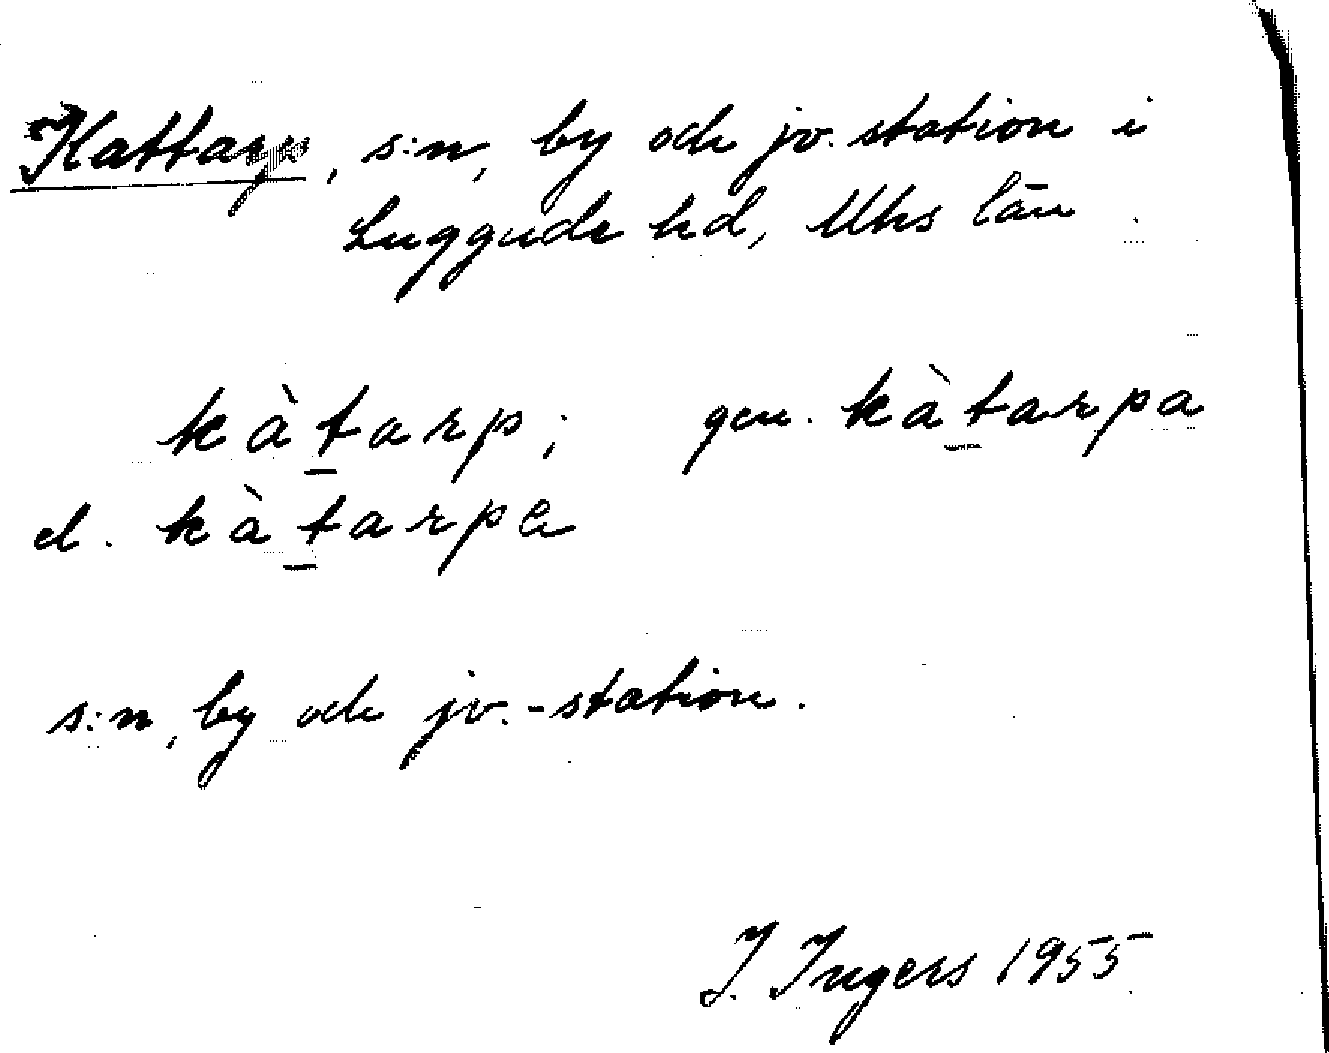 Kattarp, s:n, by och jv. station i
Luggude hd, Mhs län.
kàt̲arp; gen. kàt̲arpa
el. kàt̲arpɐ
s:n, by och jv.-station.
I. Ingers 1955